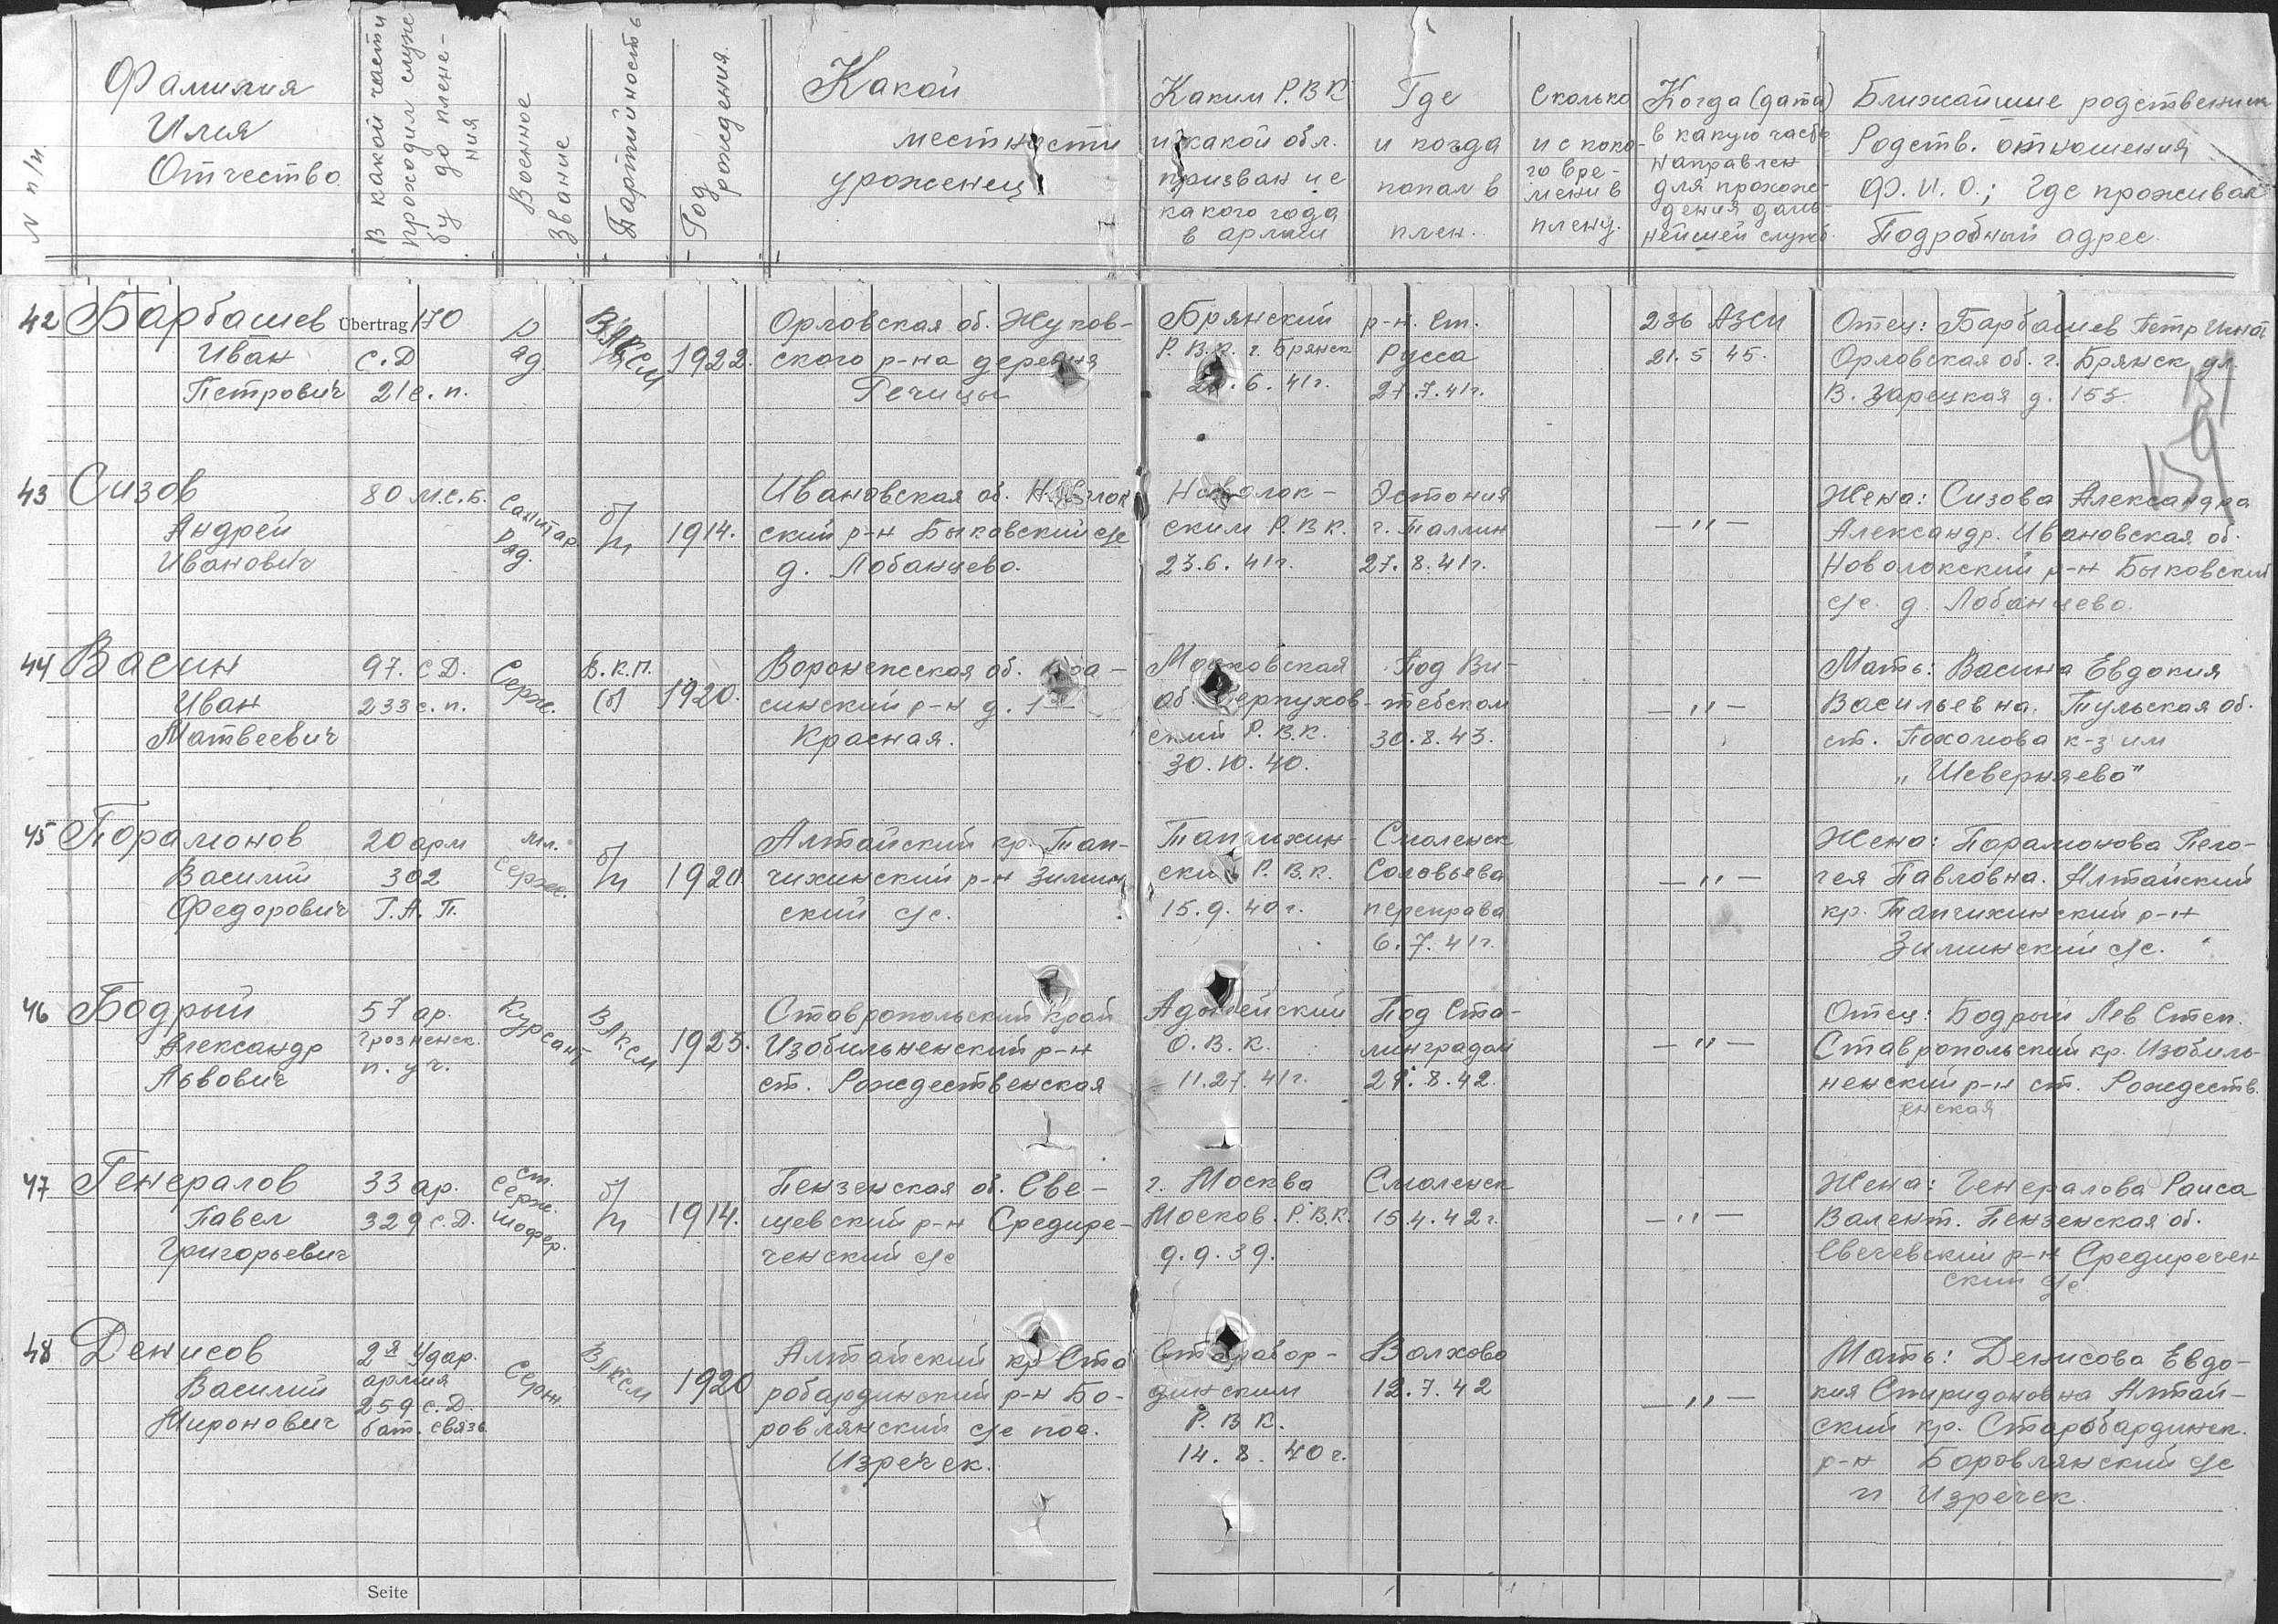 N п/п.
Фамилия
Имя
Отчество
В какой части
проходил служ
бу до плене-
ния
Военное
Звание
Партийность
Год
рождения
Какой
местности
уроженец
Каким Р.В.К
и какой обл.
призван и с
какого года
в армии
Где
и когда
попал в
плен.
Сколько
и с како-
го вре-
мени в
плену.
Когда (дата)
в какую часть
направлен
для прохож-
дения даль-
нейшей служб.
Ближайшие родственники
Родств. отношения
Ф. И. О.; Где проживает
Подробный адрес.
42 Барбашев
Иван
Петрович
Übertrag 170
с. Д
21 с. п.
Ряд.
ВЛКСМ
1922.
Орловская об. Жуков-
ского р-на деревня
Речицы
Брянский
Р. В. К. г. Брянск
6. 41г.
р-н. Ст.
Русса
27.7.41г.
236 АЗСП
21. 5 45.
Отец: Барбашев Петр Игнат
Орловская об. г. Брянск ул.
В. Зарецкая д. 153.
159
43 Сизов
Андрей
Иванович
80 м.с.б.
Санитар
ряд.
б/п
1914.
Ивановская об. Наволок
ский р-н Быковский с/с
д. Лобанцево.
Наволок-
ским Р. В. К.
23.6.41г.
Эстония
г. Таллин
27.8.41г.
—"—
Жена: Сизова Александра
Александр. Ивановская об.
Новолокский р-н Быковский
с/с. д. Лобанцево.
44 Васин
Иван
Матвеевич
97. с Д.
233 с. п.
Серж.
В. К. П.
(б)
1920.
Воронежская об.
синский р-н д. 1ая
Красная.
Московская
об. Серпухов-
ский Р. В. К.
30. 10. 40.
Под Ви-
тебском
30. 8. 43.
—"—
Мать: Васина Евдокия
Васильевна. Тульская об.
ст. Пахомова к-з им
„Шеверняево"
45 Порамонов
Василий
Федорович
20 арм
302
Г. А. П.
мл.
серж.
б/п
1920
Алтайский кр. Топ-
чихинский р-н Зимин
ский с/с.
Топчихин-
ский Р. В. К.
15. 9. 40г.
Смоленск
Соловьева
переправа
6. 7. 41г.
—"—
Жена: Порамонова Пела-
гея Павловна. Алтайский
кр. Топчихинский р-н
Зиминский с/с.
46 Бодрый
Александр
Львович
57 ар.
Грозненск.
п. уч.
Курсант
ВЛКСМ
1923.
Ставропольский край
Изобильненский р-н
ст. Рождественская
Адыгейский
О. В. К.
11.27. 41г.
Под Ста-
линградом
29. 8. 42.
—"—
Отец: Бодрый Лев Степ.
Ставропольский кр. Изобиль-
ненский р-н ст. Рождеств.
енская
47 Генералов
Павел
Григорьевич
33 ар.
329 с. Д.
ст.
серж.
шофер.
б/п
1914.
Пензенская об. Све-
щевский р-н Средире-
ченский с/с
г. Москва
Москов. Р. В. К.
9. 9. 39.
Смоленск
15.4. 42г.
—"—
Жена: Генералова Раиса
Валент. Пензенская об.
Свечевский р-н Средиречен
ский с/с
48 Денисов
Василий
Миронович
2я Удар.
армия
259 с. Д.
бат. связь
Серж
ВЛКСМ
1920
Алтайский кр Ста
робардинский р-н Бо-
ровлянский с/с пос.
Изречек.
Старобор-
динским
Р. В К.
14. 8. 40г.
Волхово
12. 7. 42
—"—
Мать: Денисова Евдо-
кия Спиридоновна Алтай-
ский кр. Старобардинск.
р-н Боровлянский с/с
п Изречек.
Seite